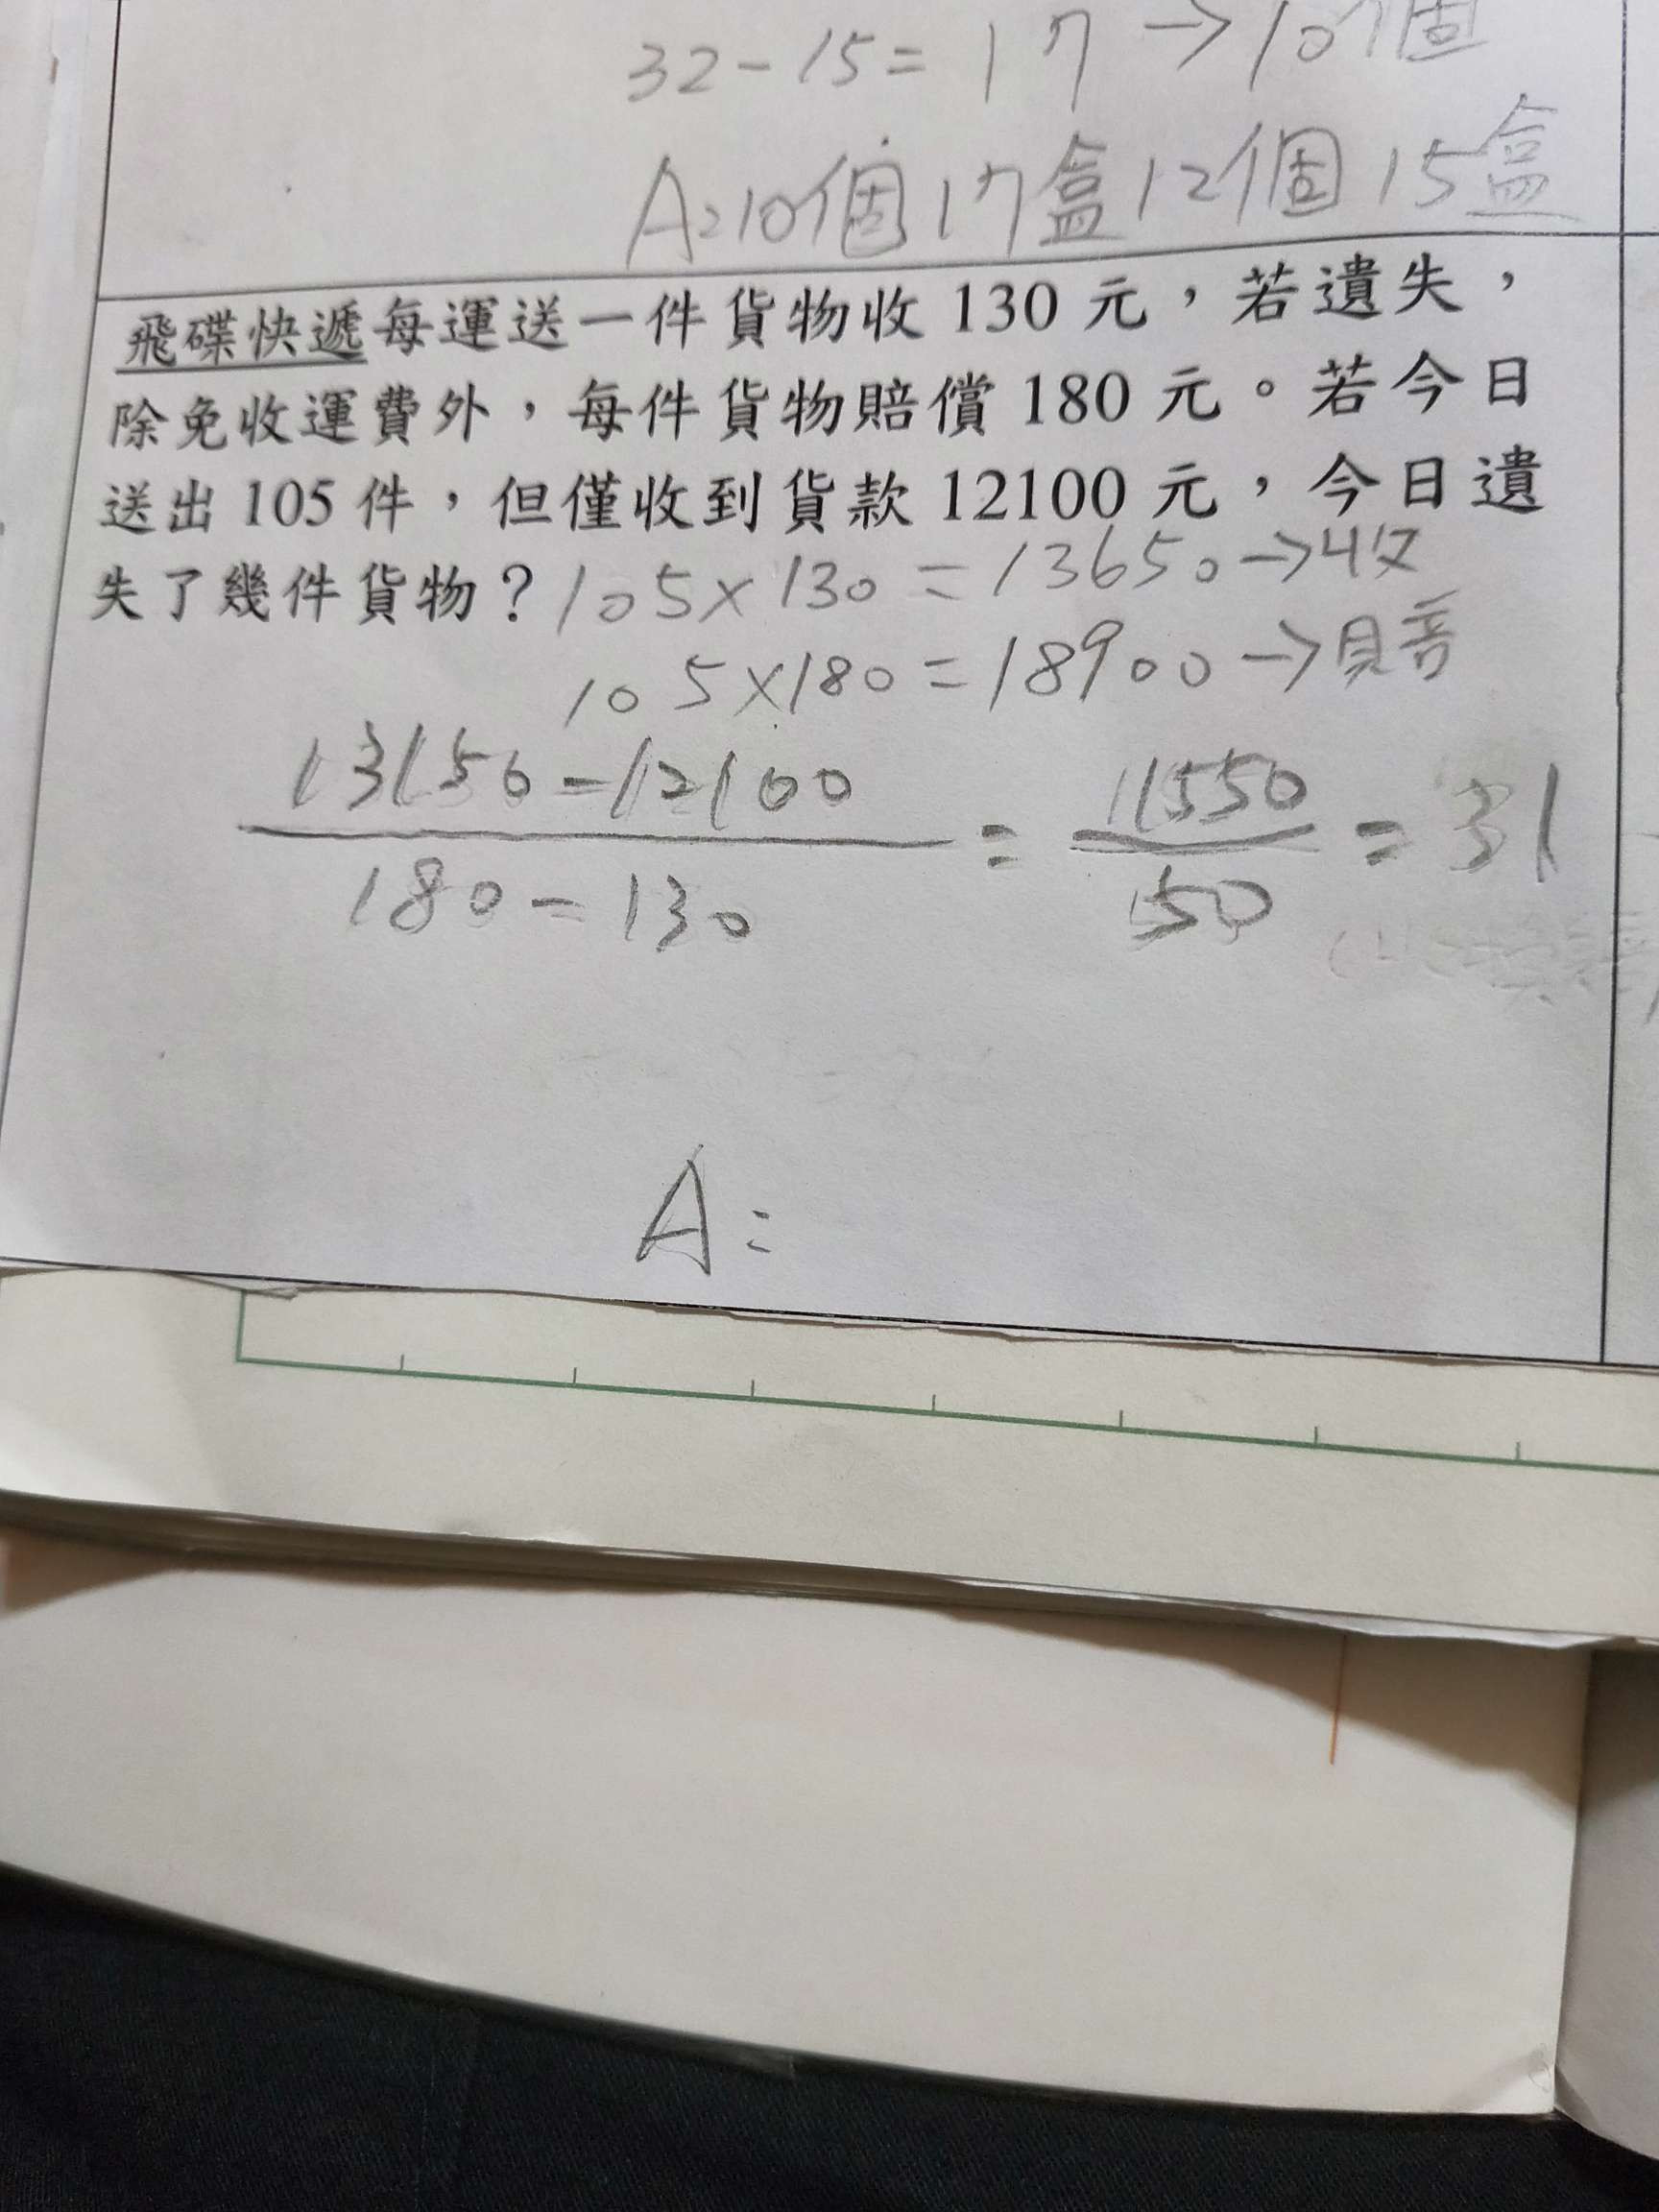 32-15=17→10個
A=10個17盒12個15盒
飛碟快遞每運送一件貨物收 130 元，若遺失，
除免收運費外，每件貨物賠償 180 元。若今日
送出 105 件，但僅收到貨款 12100 元，今日遺
失了幾件貨物？105×130=13650→收
105×180=18900→賠
13150-12100
180-130
=
11550
50
=31
A=